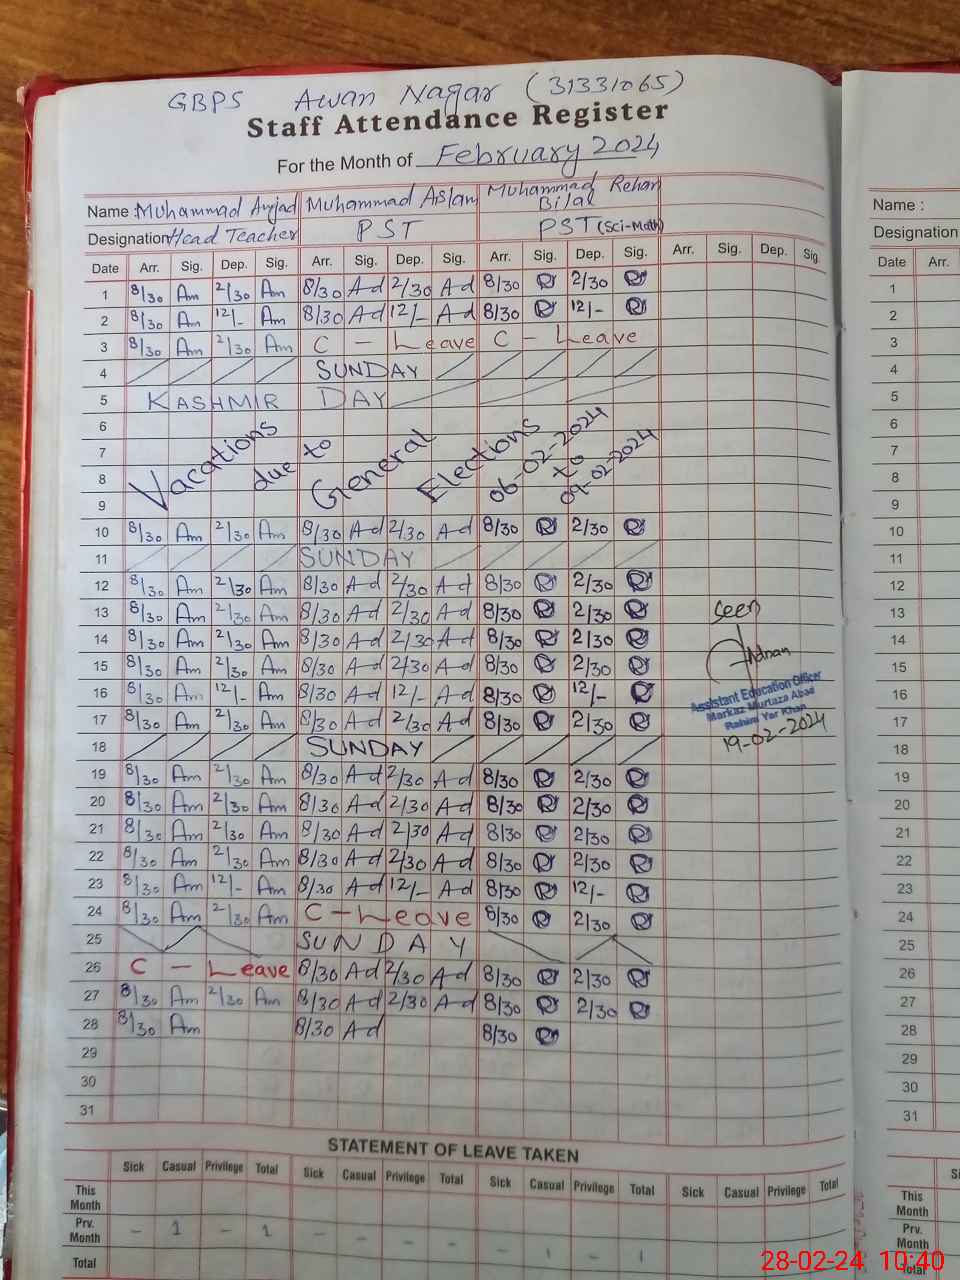 GBPS Awan Nagar (31331065)
Staff Attendance Register
For the Month of February 2024
Name : Muhammad Amjad Muhammad Aslam Muhammad Rehan Bilal
Name :
Designation Head Teacher PST PST (Sci-Math)
Designation
Date Arr. Sig. Dep. Sig. Arr. Sig. Dep. Sig. Arr. Sig. Dep. Sig. Arr. Sig. Dep. Sig.
Date Arr.
1 8/30 Am 2/30 Am 8/30 Ad 2/30 Ad 8/30 2/30
2 8/30 Am 12/- Am 8/30 Ad 12/- Ad 8/30 12/-
3 8/30 Am 2/30 Am C - Leave C - Leave
4 SUNDAY
5 KASHMIR DAY
6
7
8
9
Vacations due to General Elections 06-02-2024 to 09-02-2024
10 8/30 Am 2/30 Am 8/30 Ad 2/30 Ad 8/30 2/30
11 SUNDAY
12 8/30 Am 2/30 Am 8/30 Ad 2/30 Ad 8/30 2/30
13 8/30 Am 2/30 Am 8/30 Ad 2/30 Ad 8/30 2/30
14 8/30 Am 2/30 Am 8/30 Ad 2/30 Ad 8/30 2/30
15 8/30 Am 2/30 Am 8/30 Ad 2/30 Ad 8/30 2/30
16 8/30 Am 12/- Am 8/30 Ad 12/- Ad 8/30 12/-
17 8/30 Am 2/30 Am 8/30 Ad 2/30 Ad 8/30 2/30
18 SUNDAY
Seen
Adnan
Assistant Education Officer
Markaz Murtaza Abad
Rahim Yar Khan
19-02-2024
19 8/30 Am 2/30 Am 8/30 Ad 2/30 Ad 8/30 2/30
20 8/30 Am 2/30 Am 8/30 Ad 2/30 Ad 8/30 2/30
21 8/30 Am 2/30 Am 8/30 Ad 2/30 Ad 8/30 2/30
22 8/30 Am 2/30 Am 8/30 Ad 2/30 Ad 8/30 2/30
23 8/30 Am 12/- Am 8/30 Ad 12/- Ad 8/30 12/-
24 8/30 Am 2/30 Am C - Leave 8/30 2/30
25 SUNDAY
26 C - Leave 8/30 Ad 2/30 Ad 8/30 2/30
27 8/30 Am 2/30 Am 8/30 Ad 2/30 Ad 8/30 2/30
28 8/30 Am 8/30 Ad 8/30
29
30
31
1
2
3
4
5
6
7
8
9
10
11
12
13
14
15
16
17
18
19
20
21
22
23
24
25
26
27
28
29
30
31
STATEMENT OF LEAVE TAKEN
Sick Casual Privilege Total Sick Casual Privilege Total Sick Casual Privilege Total Sick Casual Privilege Total
This Month
Prv. Month - 1 - 1 - - - - - 1 - 1
Total
This Month
Prv. Month
Total
28-02-24 10:40